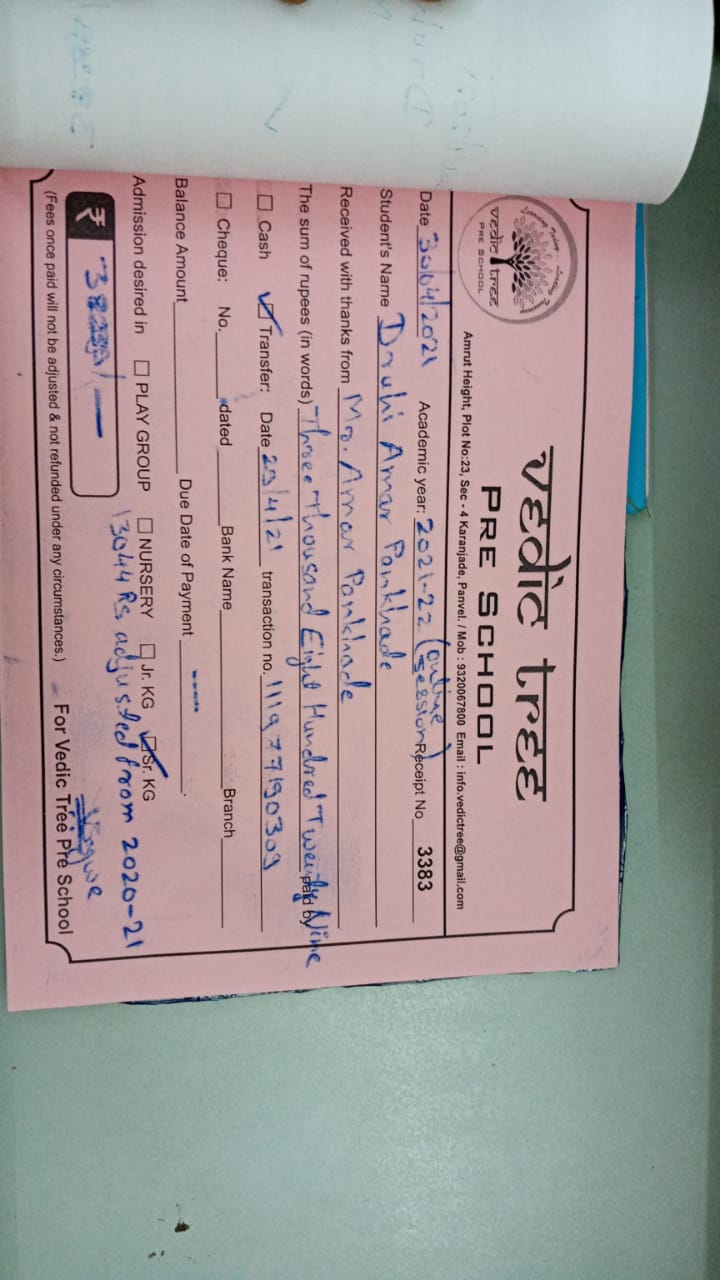 vedic tree
PRE SCHOOL
Learning Today
vedic tree
PRE SCHOOL
Amrut Height, Plot No:23, Sec - 4 Karanjade, Panvel. / Mob : 9320067800 Email : info.vedictree@gmail.com
Date 30/04/2021 Academic year: 2021-22 (Online Session) Receipt No 3383
Student's Name Amar Pankhade
Received with thanks from Mr. Amar Pankhade
The sum of rupees (in words) Three Thousand Eight Hundred Twenty Nine paid by
Cash Transfer: Date 29/4/21 transaction no. 111977190309
Cheque: No. dated Bank Name Branch
Balance Amount Due Date of Payment
Admission desired in PLAY GROUP NURSERY Jr. KG Sr. KG
13044 Rs adjusted from 2020-21
₹
(Fees once paid will not be adjusted & not refunded under any circumstances.) For Vedic Tree Pre School